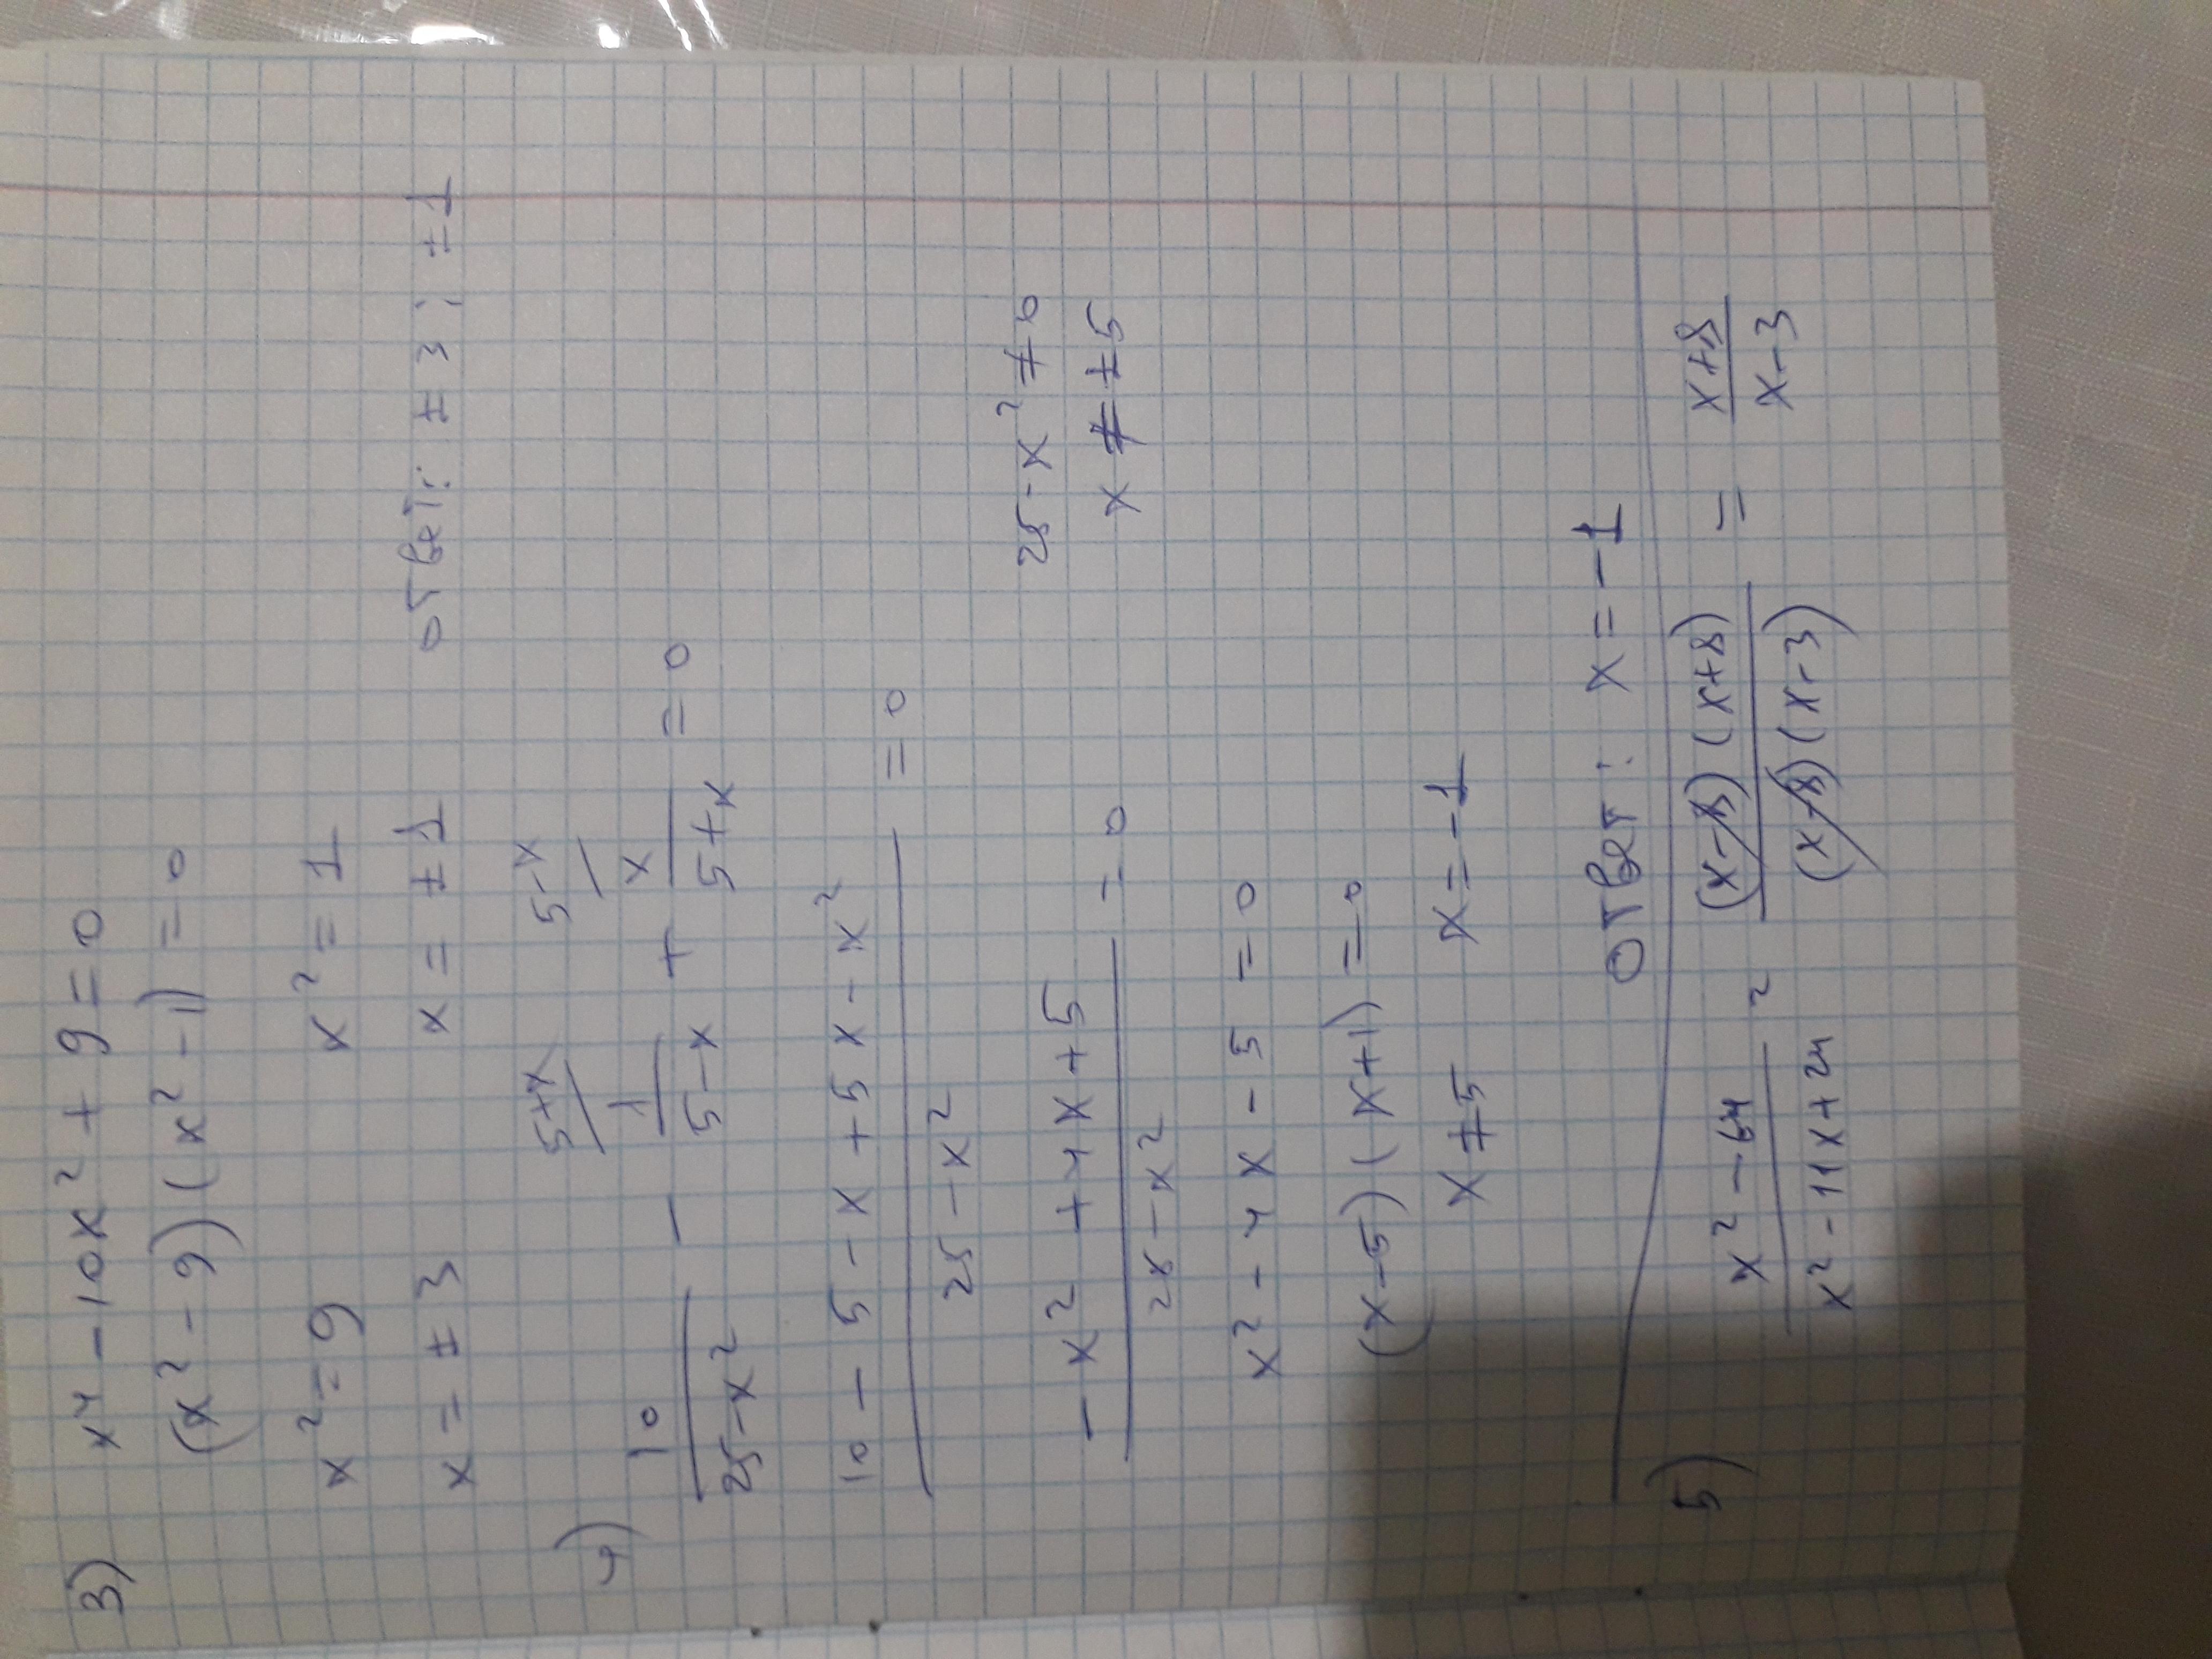 3) x⁴ - 10x² + 9 = 0
(x² - 9)(x² - 1) = 0
x² = 9 x² = 1
x = ±3 x = ±1 ответ: ±3; ±1
4) 10/(25-x²) - 1/(5-x) + x/(5+x) = 0
5+x 5-x
(10 - 5 - x + 5x - x²)/(25-x²) = 0
(-x² + 4x + 5)/(25-x²) = 0 25-x² ≠ 0
x ≠ ±5
x² - 4x - 5 = 0
(x-5)(x+1) = 0
x ≠ 5 x = -1
ответ: x = -1
5) (x² - 64)/(x² - 11x + 24) = ((x-8)(x+8))/((x-8)(x-3)) = (x+8)/(x-3)